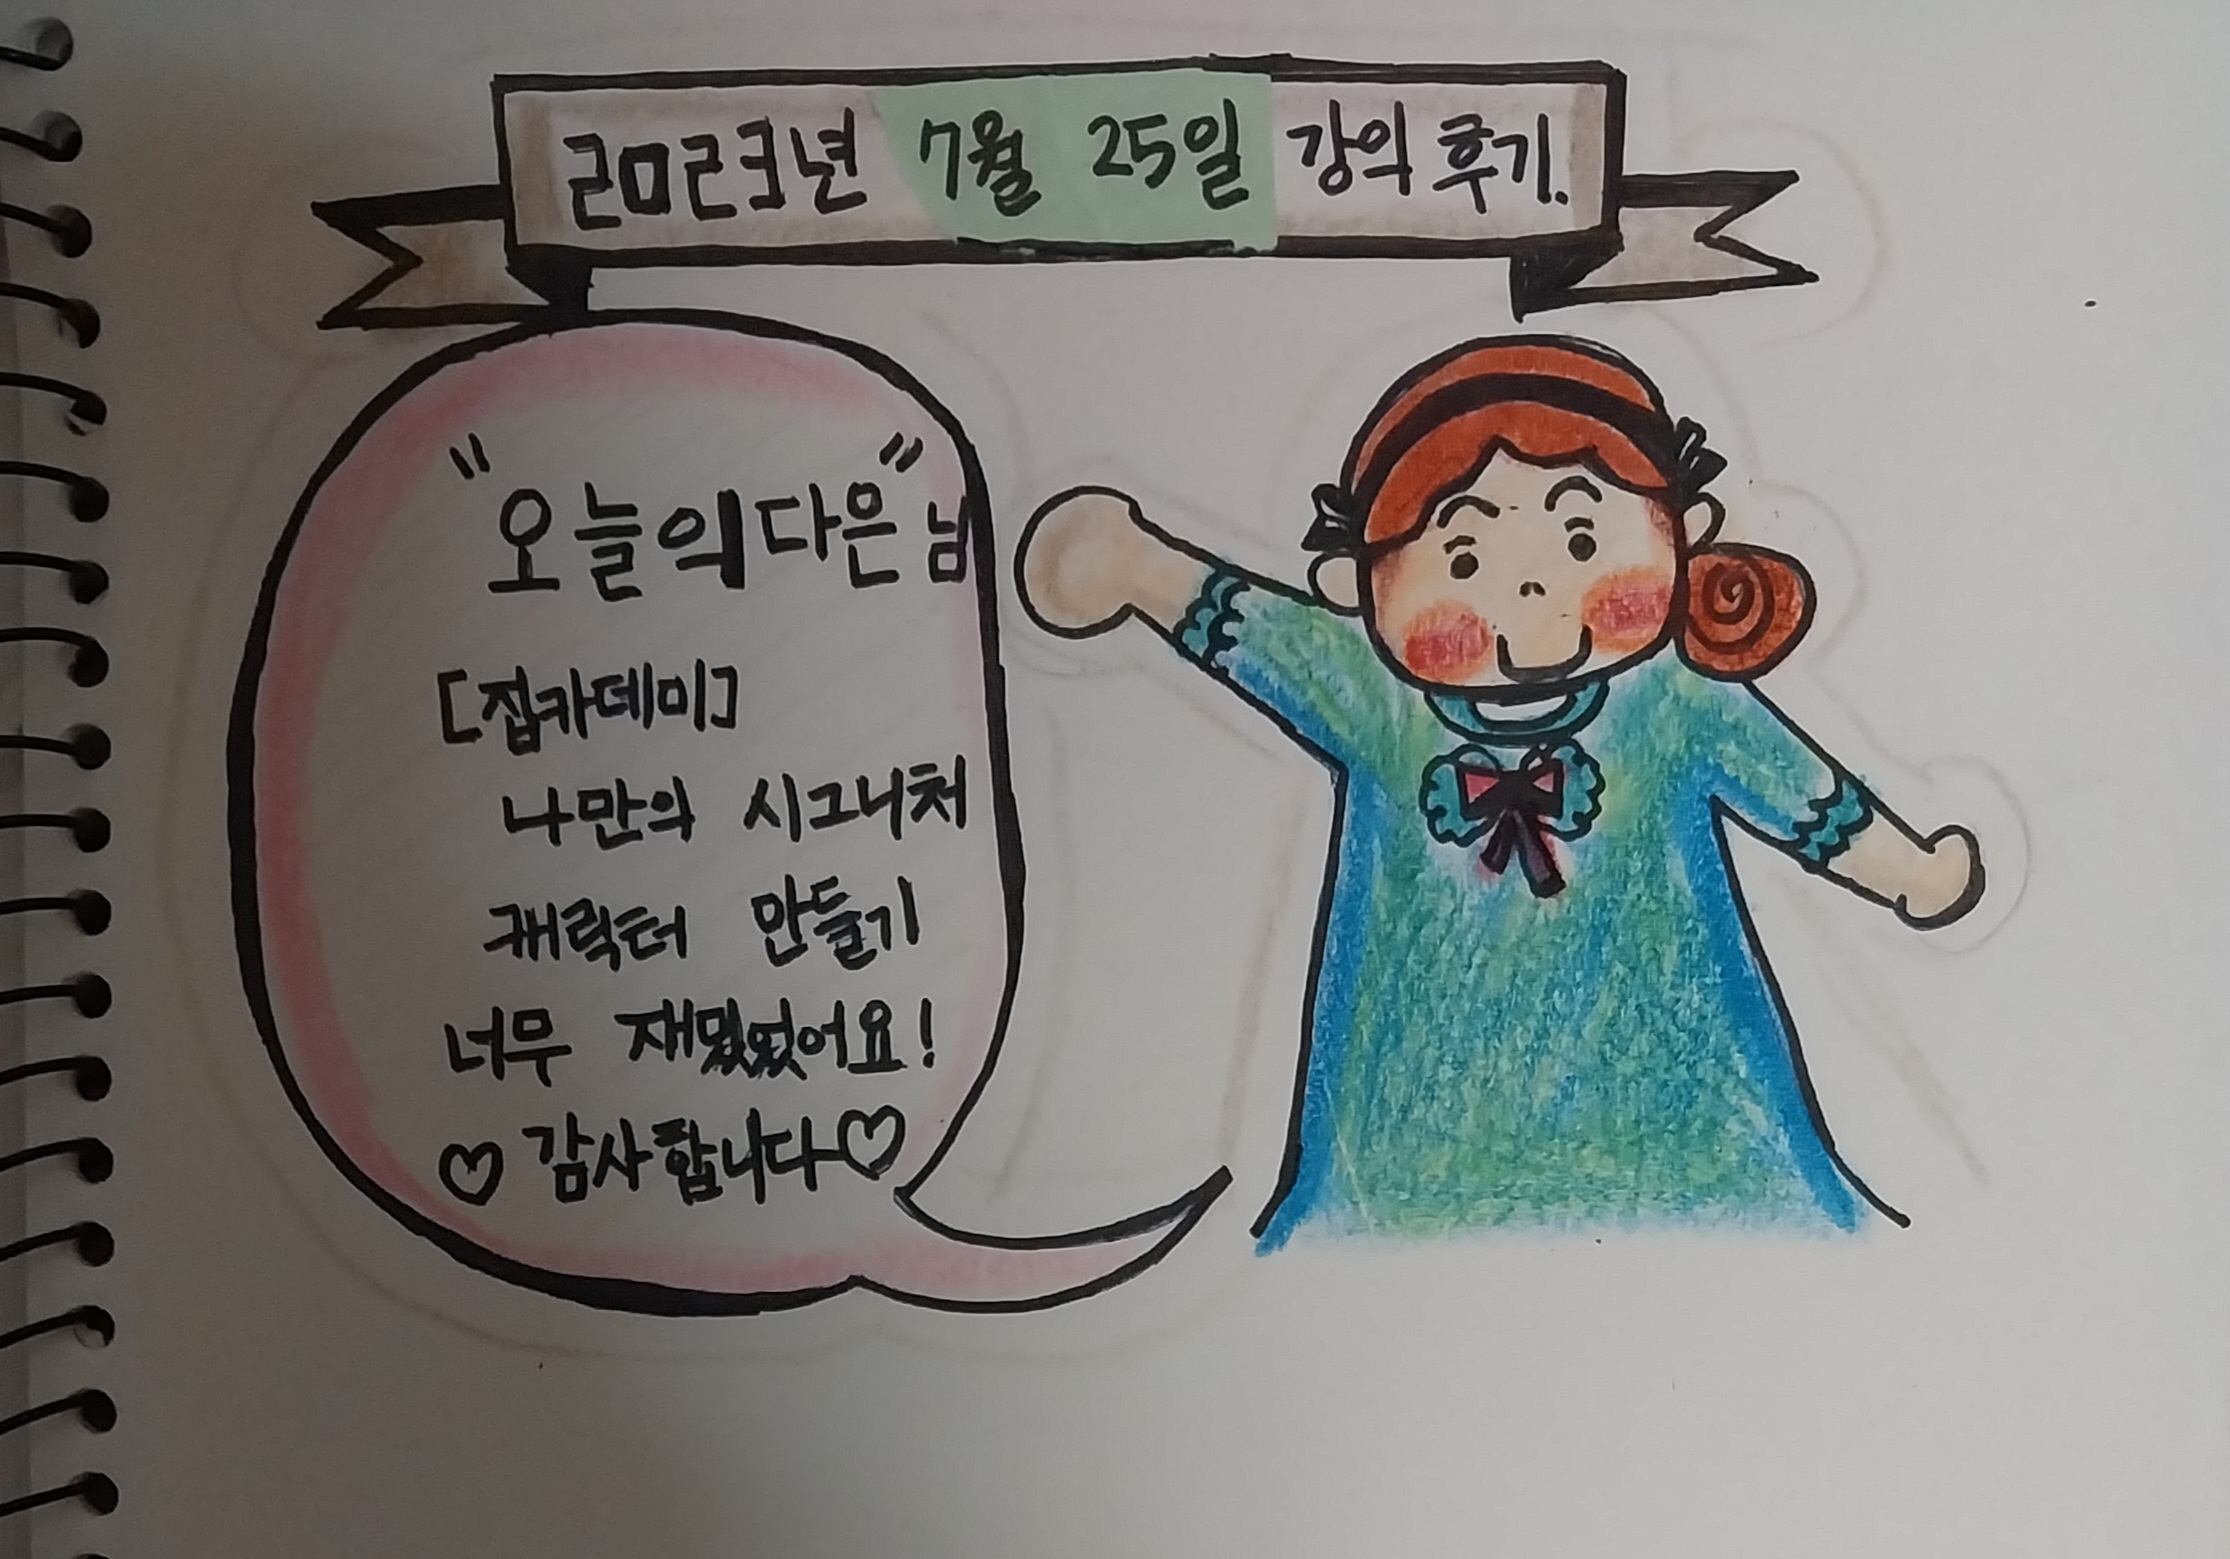 2023년 7월 25일 강의 후기.
"오늘의다은"님
[집카데미]
나만의 시그니처
캐릭터 만들기
너무 재밌었어요!
♡감사합니다♡